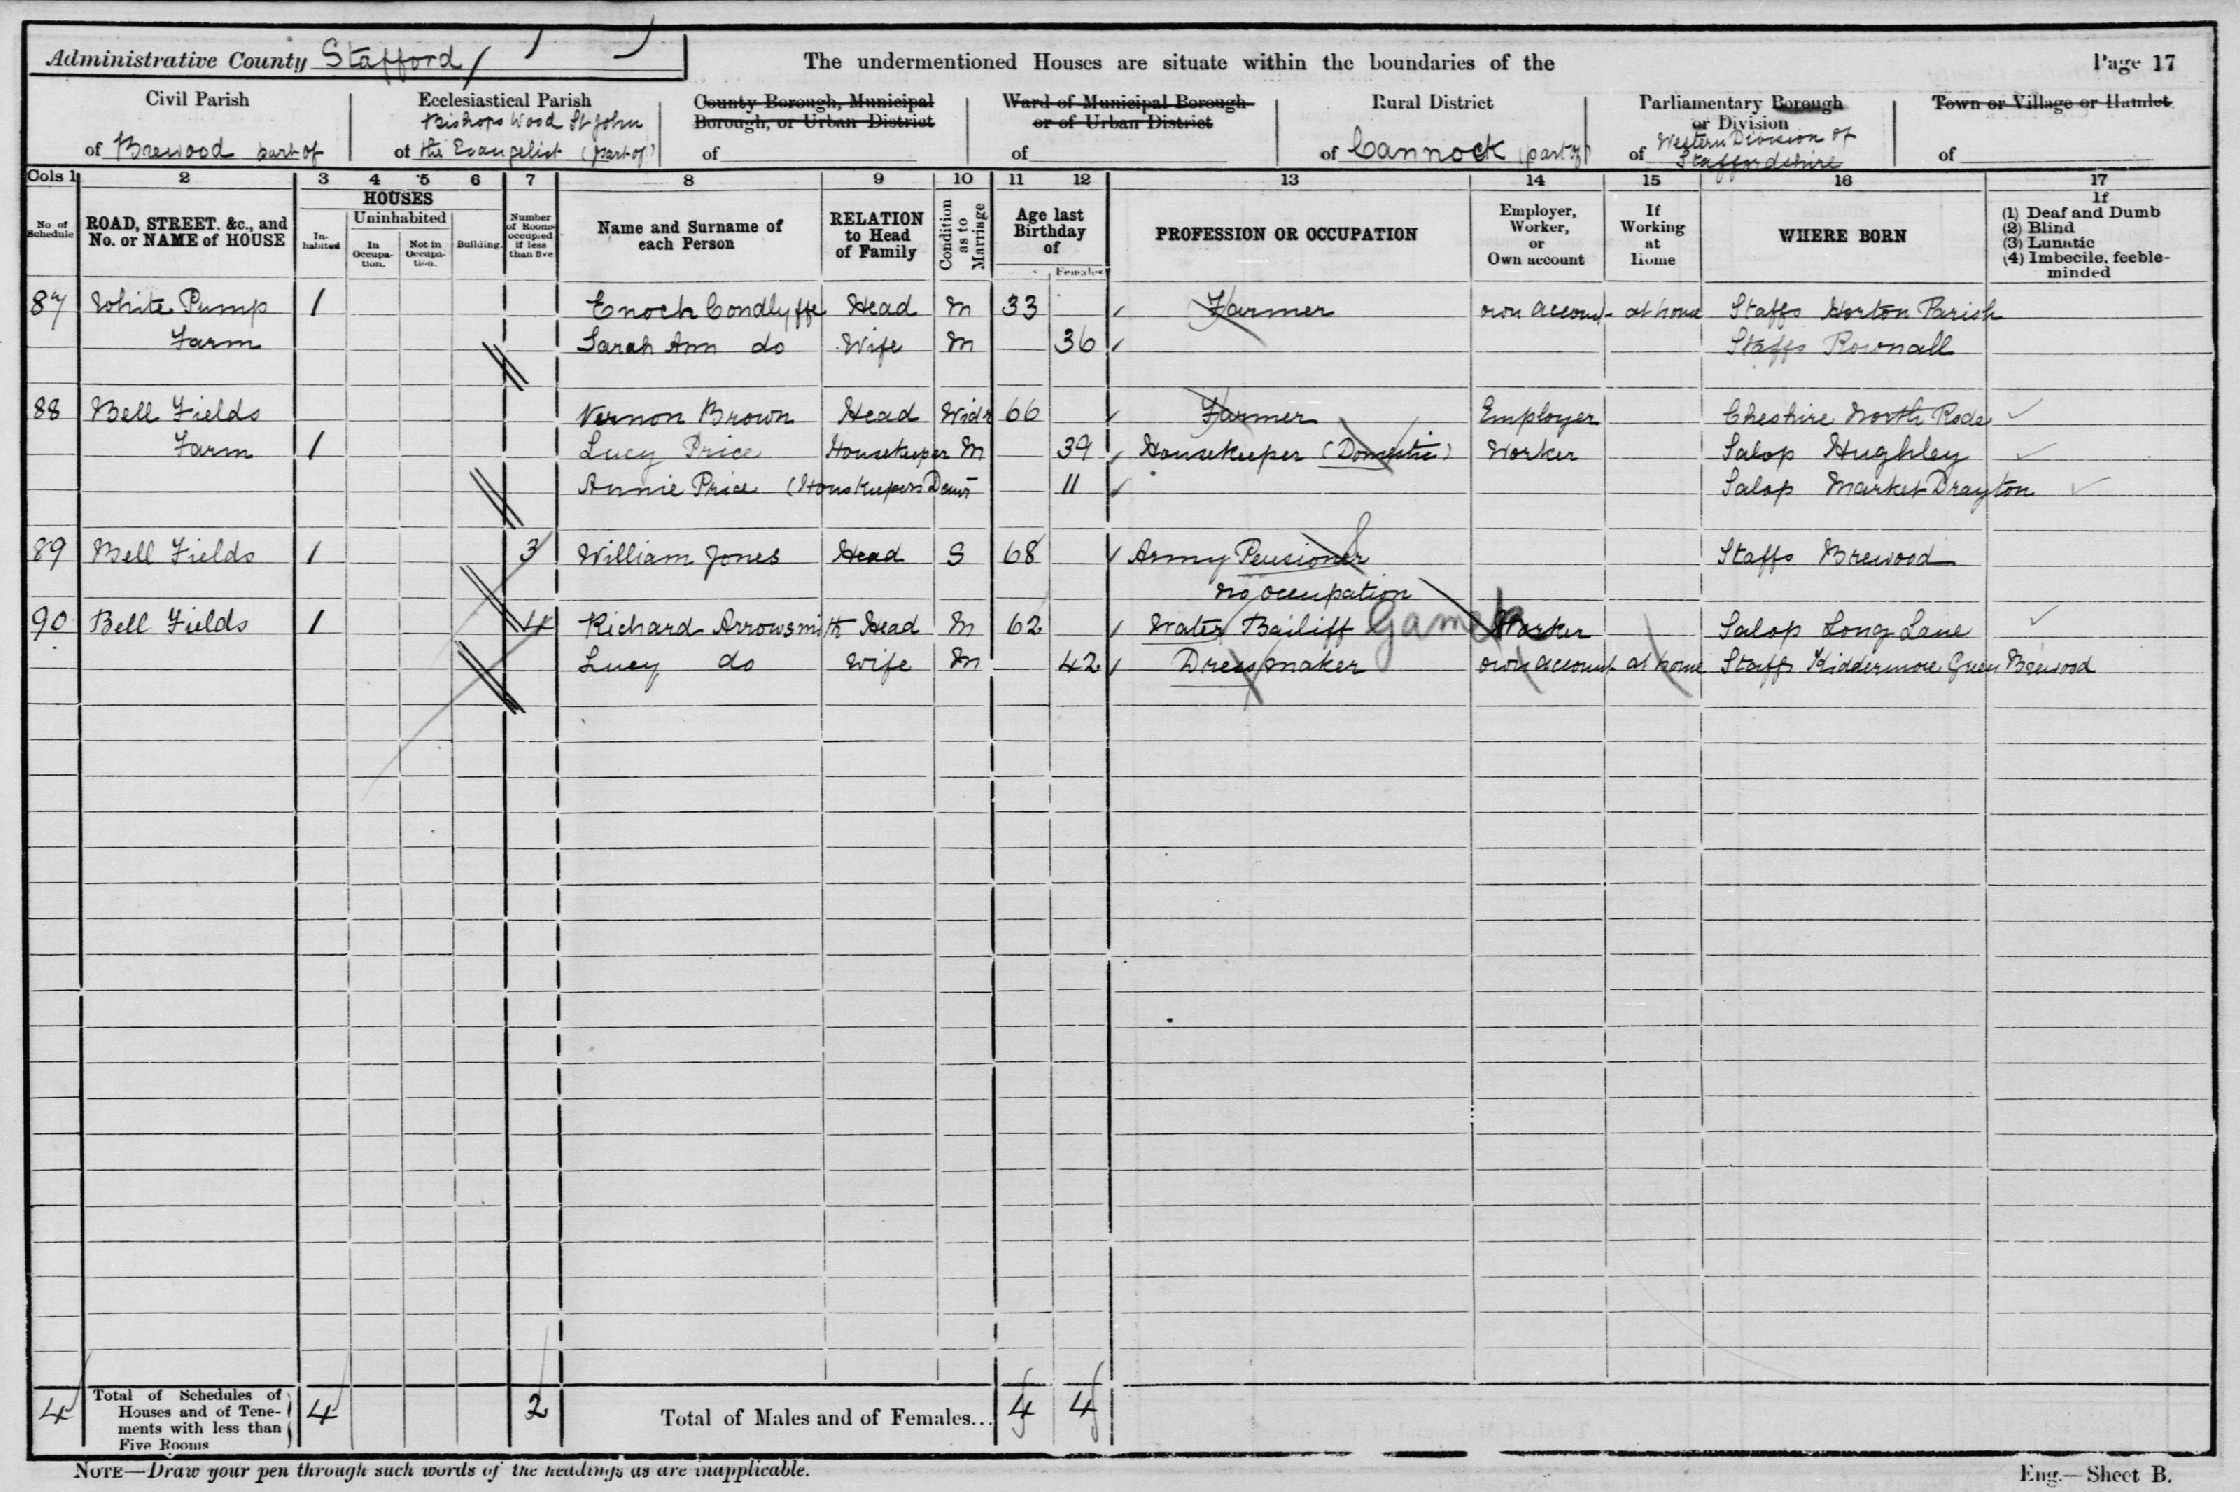 Administrative County Stafford
The undermentioned Houses are situate within the boundaries of the
Page 17
Civil Parish
of Brewood part of
Ecclesiastical Parish
Bishops Wood St John
of the Evangelist (part of)
County Borough, Municipal
Borough, or Urban District
of
Ward of Municipal Borough
or of Urban District
of
Rural District
of Cannock (part of)
Parliamentary Borough
or Division
Western Division of
of Staffordshire
Town or Village or Hamlet
of
Cols 1 2 3 4 5 6 7 8 9 10 11 12 13 14 15 16 17
No of Schedule
ROAD, STREET. &c., and
No. or NAME of HOUSE
HOUSES
In-habited
Uninhabited
In Occupa-tion.
Not in Occupa-tion.
Building.
Number of Rooms occupied if less than five
Name and Surname of
each Person
RELATION
to Head
of Family
Condition as to Marriage
Age last
Birthday
of
Females
PROFESSION OR OCCUPATION
Employer,
Worker,
or
Own account
If
Working
at
Home
WHERE BORN
If
(1) Deaf and Dumb
(2) Blind
(3) Lunatic
(4) Imbecile, feeble-
minded
87 White Pump 1 Enoch Condlyffe Head M 33 Farmer own account at home Staffs Horton Parish
Farm Sarah Ann do Wife M 36 Staffs Rownall
88 Bell Fields Vernon Brown Head Widr 66 Farmer Employer Cheshire North Rode
Farm 1 Lucy Price Housekeeper M 39 Housekeeper (Domestic) Worker Salop Hughley
Annie Price (Housekeepers Daur 11 Salop Market Drayton
89 Bell Fields 1 3 William Jones Head S 68 Army Pensioner Staffs Brewood
No occupation
90 Bell Fields 1 4 Richard Arrowsmith Head M 62 Water Bailiff Worker Salop Long Lane
Lucy do Wife M 42 Dressmaker own account at home Staffs Kiddermore Green Brewood
4 Total of Schedules of
Houses and of Tene-
ments with less than
Five Rooms
4 2 Total of Males and of Females... 4 4
NOTE—Draw your pen through such words of the headings as are inapplicable.
Eng.—Sheet B.